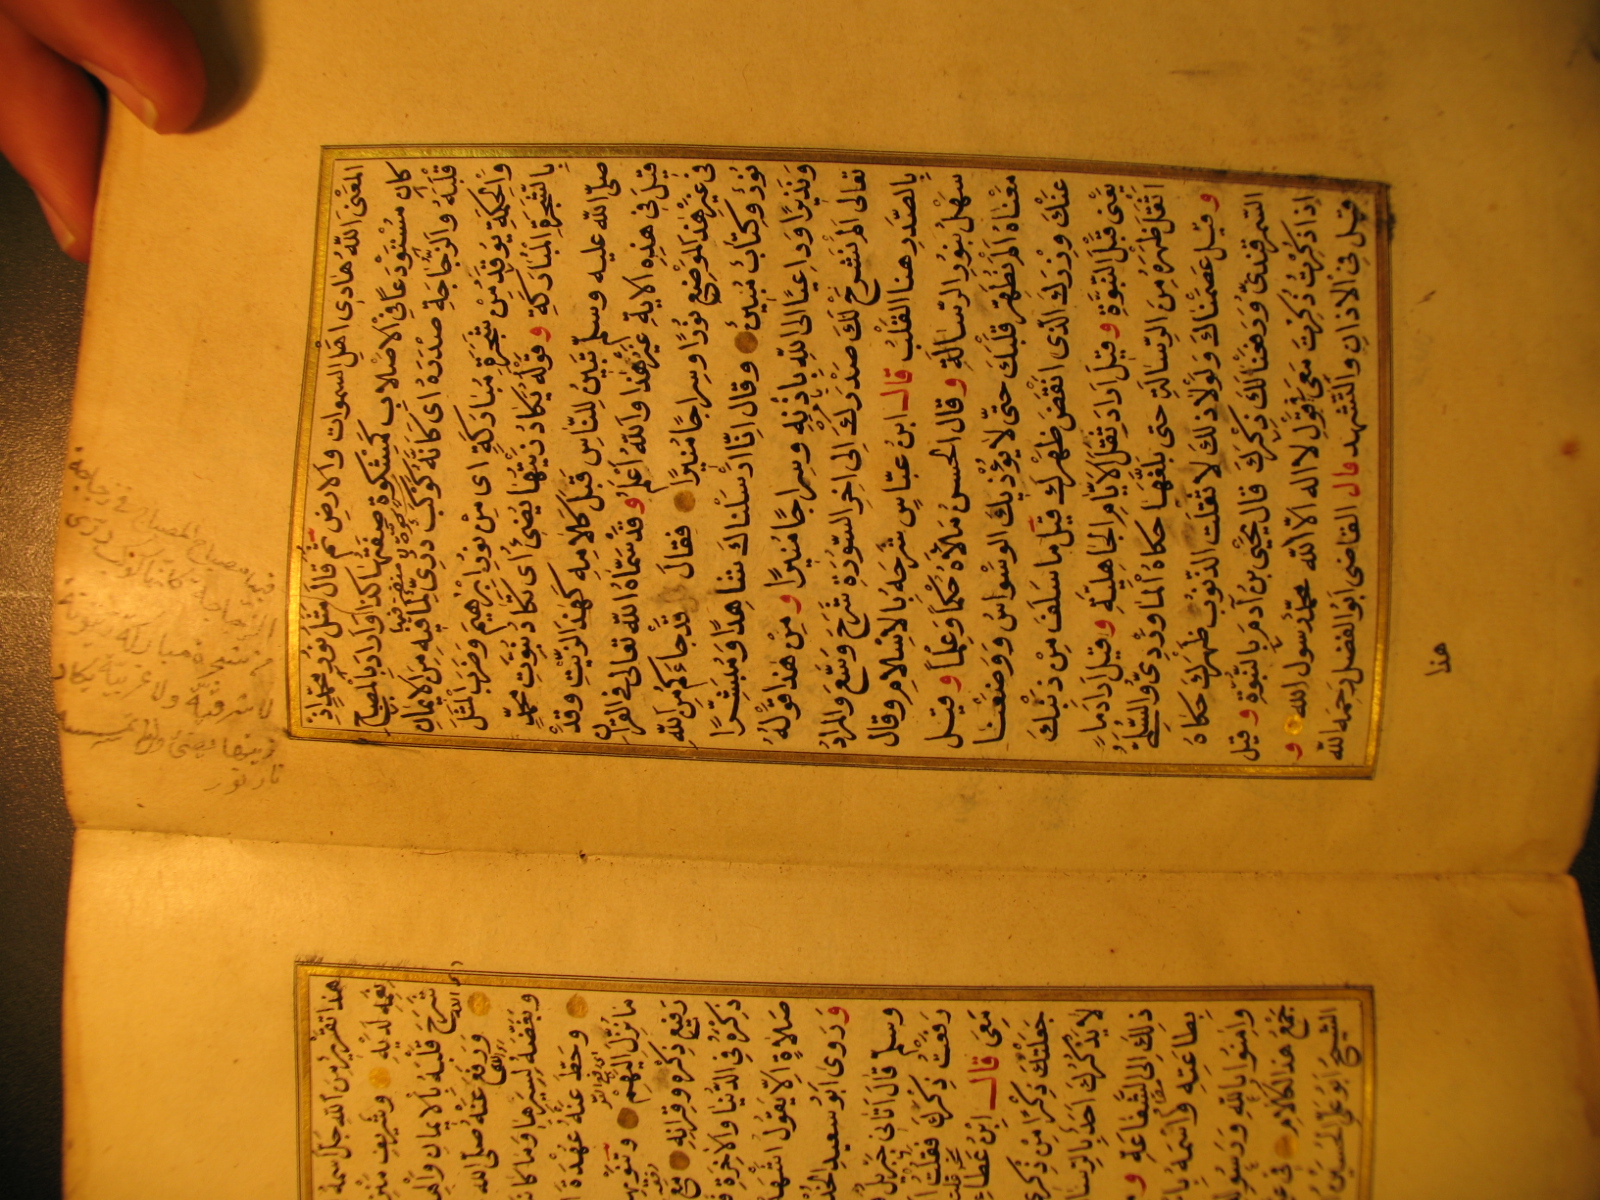 المَعْنَى اَللهُ هَادِى اَهْلِ السموات وَالارضِ ثُمَّ قَالَ مَثَلُ نُورِ مُحَمَّدٍ اِذْ
كَانَ مُسْتَوْدَعًا فِي الاَصْلابِ كَمِشْكٰوةٍ صِفَتُهَا كَذَا وَاَرَادَ بِالمِصْبَاحِ
قَلْبَهُ وَالزُّجَاجَةِ صَدْرَهُ اى كَاَنَّهُ كَوْكَبٌ دُرِّىٌّ لِمَا فِيهِ مِنَ الاِيمَانِ
وَالحِكْمَةِ يُوقَدُ مِنْ شَجَرَةٍ مُبَارَكَةٍ اى مِنْ نُورِ اِبْرٰهِيمَ وَضَرَبَ المَثَلَ
بِالشَّجَرَةِ المُبَارَكَةِ وقَوْلُهُ يَكَادُ زَيْتُهَا يُضِىءُ اى تَكَادُ نُبُوَّةُ مُحَمَّدٍ
صَلَّى الله عليه وسلم تَبِينُ لِلنَّاسِ قَبْلَ كَلَامِهِ كَهٰذَا الزَّيْتِ وقَدْ
قِيلَ فِى هٰذِهِ الايَةِ غَيْرُ هٰذَا وَاللهُ اَعْلَمُ وقَدْ سَمَّاهُ اللهُ تَعَالىٰ فِى القُرْاٰنِ
فِى غَيْرِ هٰذَا المَوْضِعِ نُورًا وسِرَاجًا مُنِيرًا فقَالَ قَدْ جَاءَكُمْ مِنَ اللهِ
نُورٌ وَكِتَابٌ مُبِينٌ وقال اِنَّا اَرْسَلْنَاكَ شَاهِدًا وَمُبَشِّرًا
وَنَذِيرًا وَدَاعِيًا اِلَى اللهِ بِاِذْنِهِ وسِرَاجًا مُنِيرًا ومِنْ هٰذَا قَوْلُهُ
تَعَالىٰ اَلَمْ نَشْرَحْ لَكَ صَدْرَكَ اِلىٰ اٰخِرِ السُّورَةِ شَرَحَ وَسَّعَ وَالمُرَادُ
بِالصَّدْرِ هٰنَا القَلْبُ قال ابنُ عَبَّاسٍ شَرَحَهُ بِالاِسْلامِ وقال
سَهْلٌ بِنُورِ الرِّسَالَةِ وقال الحسنُ مَلَأَهُ حُكْمًا وَعِلْمًا وقيل
مَعْنَاهُ اَلَمْ نُطَهِّرْ قَلْبَكَ حَتَّى لَا يُؤْذِيكَ الوَسْوَاسُ وَوَضَعْنَا
عَنْكَ وِزْرَكَ الَّذِى اَنْقَضَ ظَهْرَكَ قِيلَ مَا سَلَفَ مِنْ ذَنْبِكَ
يَعْنِى قَبْلَ النُّبُوَّةِ وقيل اَرَادَ ثِقَلَ اَيَّامِ الجَاهِلِيَّةِ وقيل اَرَادَ مَا
اَثْقَلَ ظَهْرَهُ مِنَ الرِّسَالَةِ حَتَّى بَلَّغَهَا حَكَاهُ المَاوَرْدِىُّ وَالسُّلَمِىُّ
وقيل عَصَمْنَاكَ وَلَوْلَا ذٰلِكَ لَاَثْقَلَتِ الذُّنُوبُ ظَهْرَكَ حَكَاهُ
السَّمَرْقَنْدِىُّ وَرَفَعْنَا لَكَ ذِكْرَكَ قَالَ يَحْيَى بنُ اٰدَمَ بِالنُّبُوَّةِ وقيل
اِذَا ذُكِرْتُ ذُكِرْتَ مَعِى فِى قَوْلِ لَا اله اِلَّا الله محمد رسول الله و
قيل فى الاذانِ والتَّشَهُّدِ قال القاضى ابو الفضل رَحِمَهُ الله
هذا
فيها مصباح المصباح في زجاجة
الزجاجة كانها كوكب درى
من شجرة مباركة زيتونة
لا شرقية ولا غربية يكاد
زيتها يضئ ولو لم تمسسه
نار نور
هٰذَا تَقْرِيرٌ مِنَ اللهِ جَلَّ اسْمُهُ
نِعَمِهِ لَدَيْهِ وَشَرِيفِ
شَرْحَ قَلْبَهُ بِالايمَانِ
ورَفَعَ عَنْهُ
وبَغَّضَهُ لِسِيَرِهَا وَمَا كَانَتْ
وَحَطَّ عَنْهُ عُهْدَةَ
مَا نُزِّلَ اِلَيْهِمْ وَتَنْوِيهِهِ
رَفِيعِ ذِكْرِهِ وقِرَانِهِ مَعَ
ذِكْرَهُ فِى الدُّنْيَا وَالاٰخِرَةِ
صَلَاةٍ اِلَّا يَقُولُ اَشْهَدُ
وَرَوَى اَبُو سَعِيدٍ
وسلم قَالَ اَتَانِى جِبْرِيلُ
رَفَعْتُ ذِكْرَكَ فَقُلْتُ
مَعِى قال ابْنُ عَطَاءٍ
جَعَلْتُكَ ذِكْرًا مِنْ ذِكْرِى
لَا يَذْكُرُكَ اَحَدٌ بِالرِّسَالَةِ
ذٰلِكَ اِلَى الشَّفَاعَةِ و
بِطَاعَتِهِ وَاسْمَهُ
وَاٰمِنُوا بِاللهِ وَرَسُولِهِ
جَمْعُ هٰذَا الكَلَامِ فِى
الشيخ ابو على الحسين